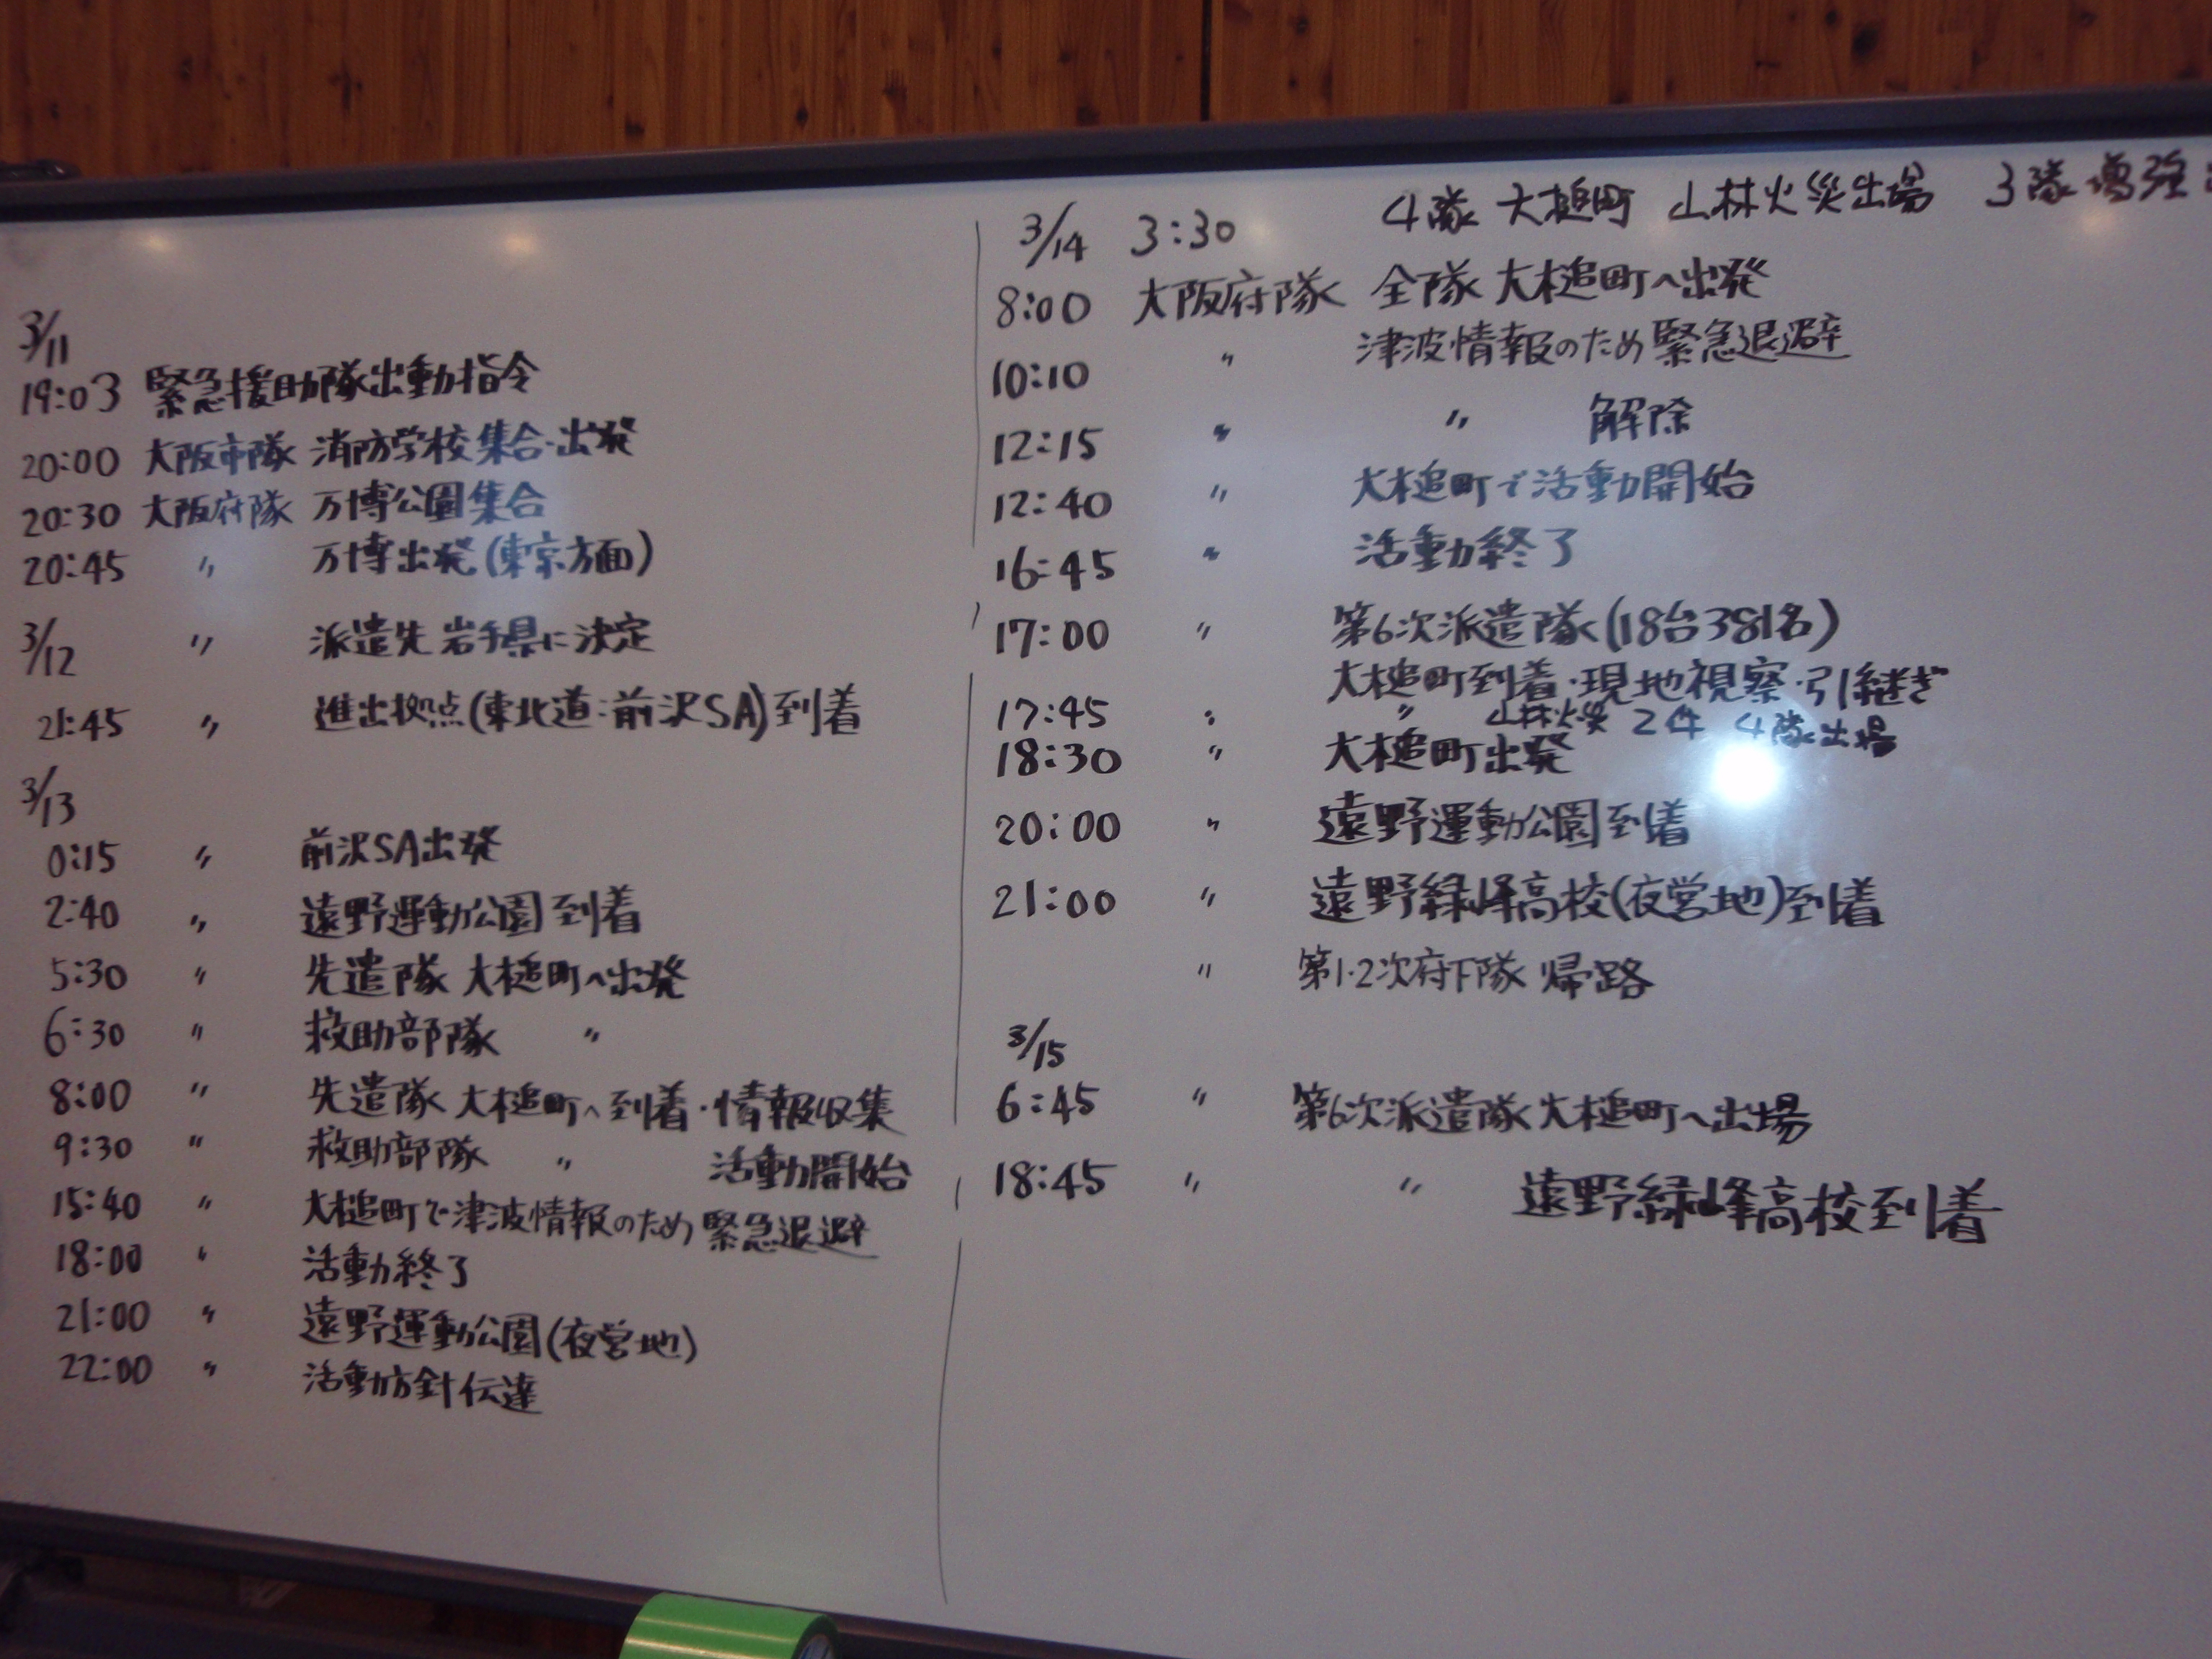 3/11
19:03 緊急援助隊出動指令
20:00 大阪市隊 消防学校集合・出発
20:30 大阪府隊 万博公園集合
20:45 〃 万博出発(東京方面)
3/12 〃 派遣先 岩手県に決定
21:45 〃 進出拠点(東北道:前沢SA)到着
3/13
0:15 〃 前沢SA出発
2:40 〃 遠野運動公園到着
5:30 〃 先遣隊 大槌町へ出発
6:30 〃 救助部隊 〃
8:00 〃 先遣隊 大槌町へ到着・情報収集
9:30 〃 救助部隊 〃 活動開始
15:40 〃 大槌町で津波情報のため緊急退避
18:00 〃 活動終了
21:00 〃 遠野運動公園(夜営地)
22:00 〃 活動方針伝達
3/14 3:30 4隊 大槌町 山林火災出場 3隊増強
8:00 大阪府隊 全隊 大槌町へ出発
10:10 〃 津波情報のため緊急退避
12:15 〃 〃 解除
12:40 〃 大槌町で活動開始
16:45 〃 活動終了
17:00 〃 第6次派遣隊(18台381名)
大槌町到着・現地視察・引継ぎ
17:45 〃 〃 山林火災 2件 4隊出場
18:30 〃 大槌町出発
20:00 〃 遠野運動公園到着
21:00 〃 遠野緑峰高校(夜営地)到着
〃 第1・2次府下隊 帰路
3/15
6:45 〃 第6次派遣隊大槌町へ出場
18:45 〃 〃 遠野緑峰高校到着